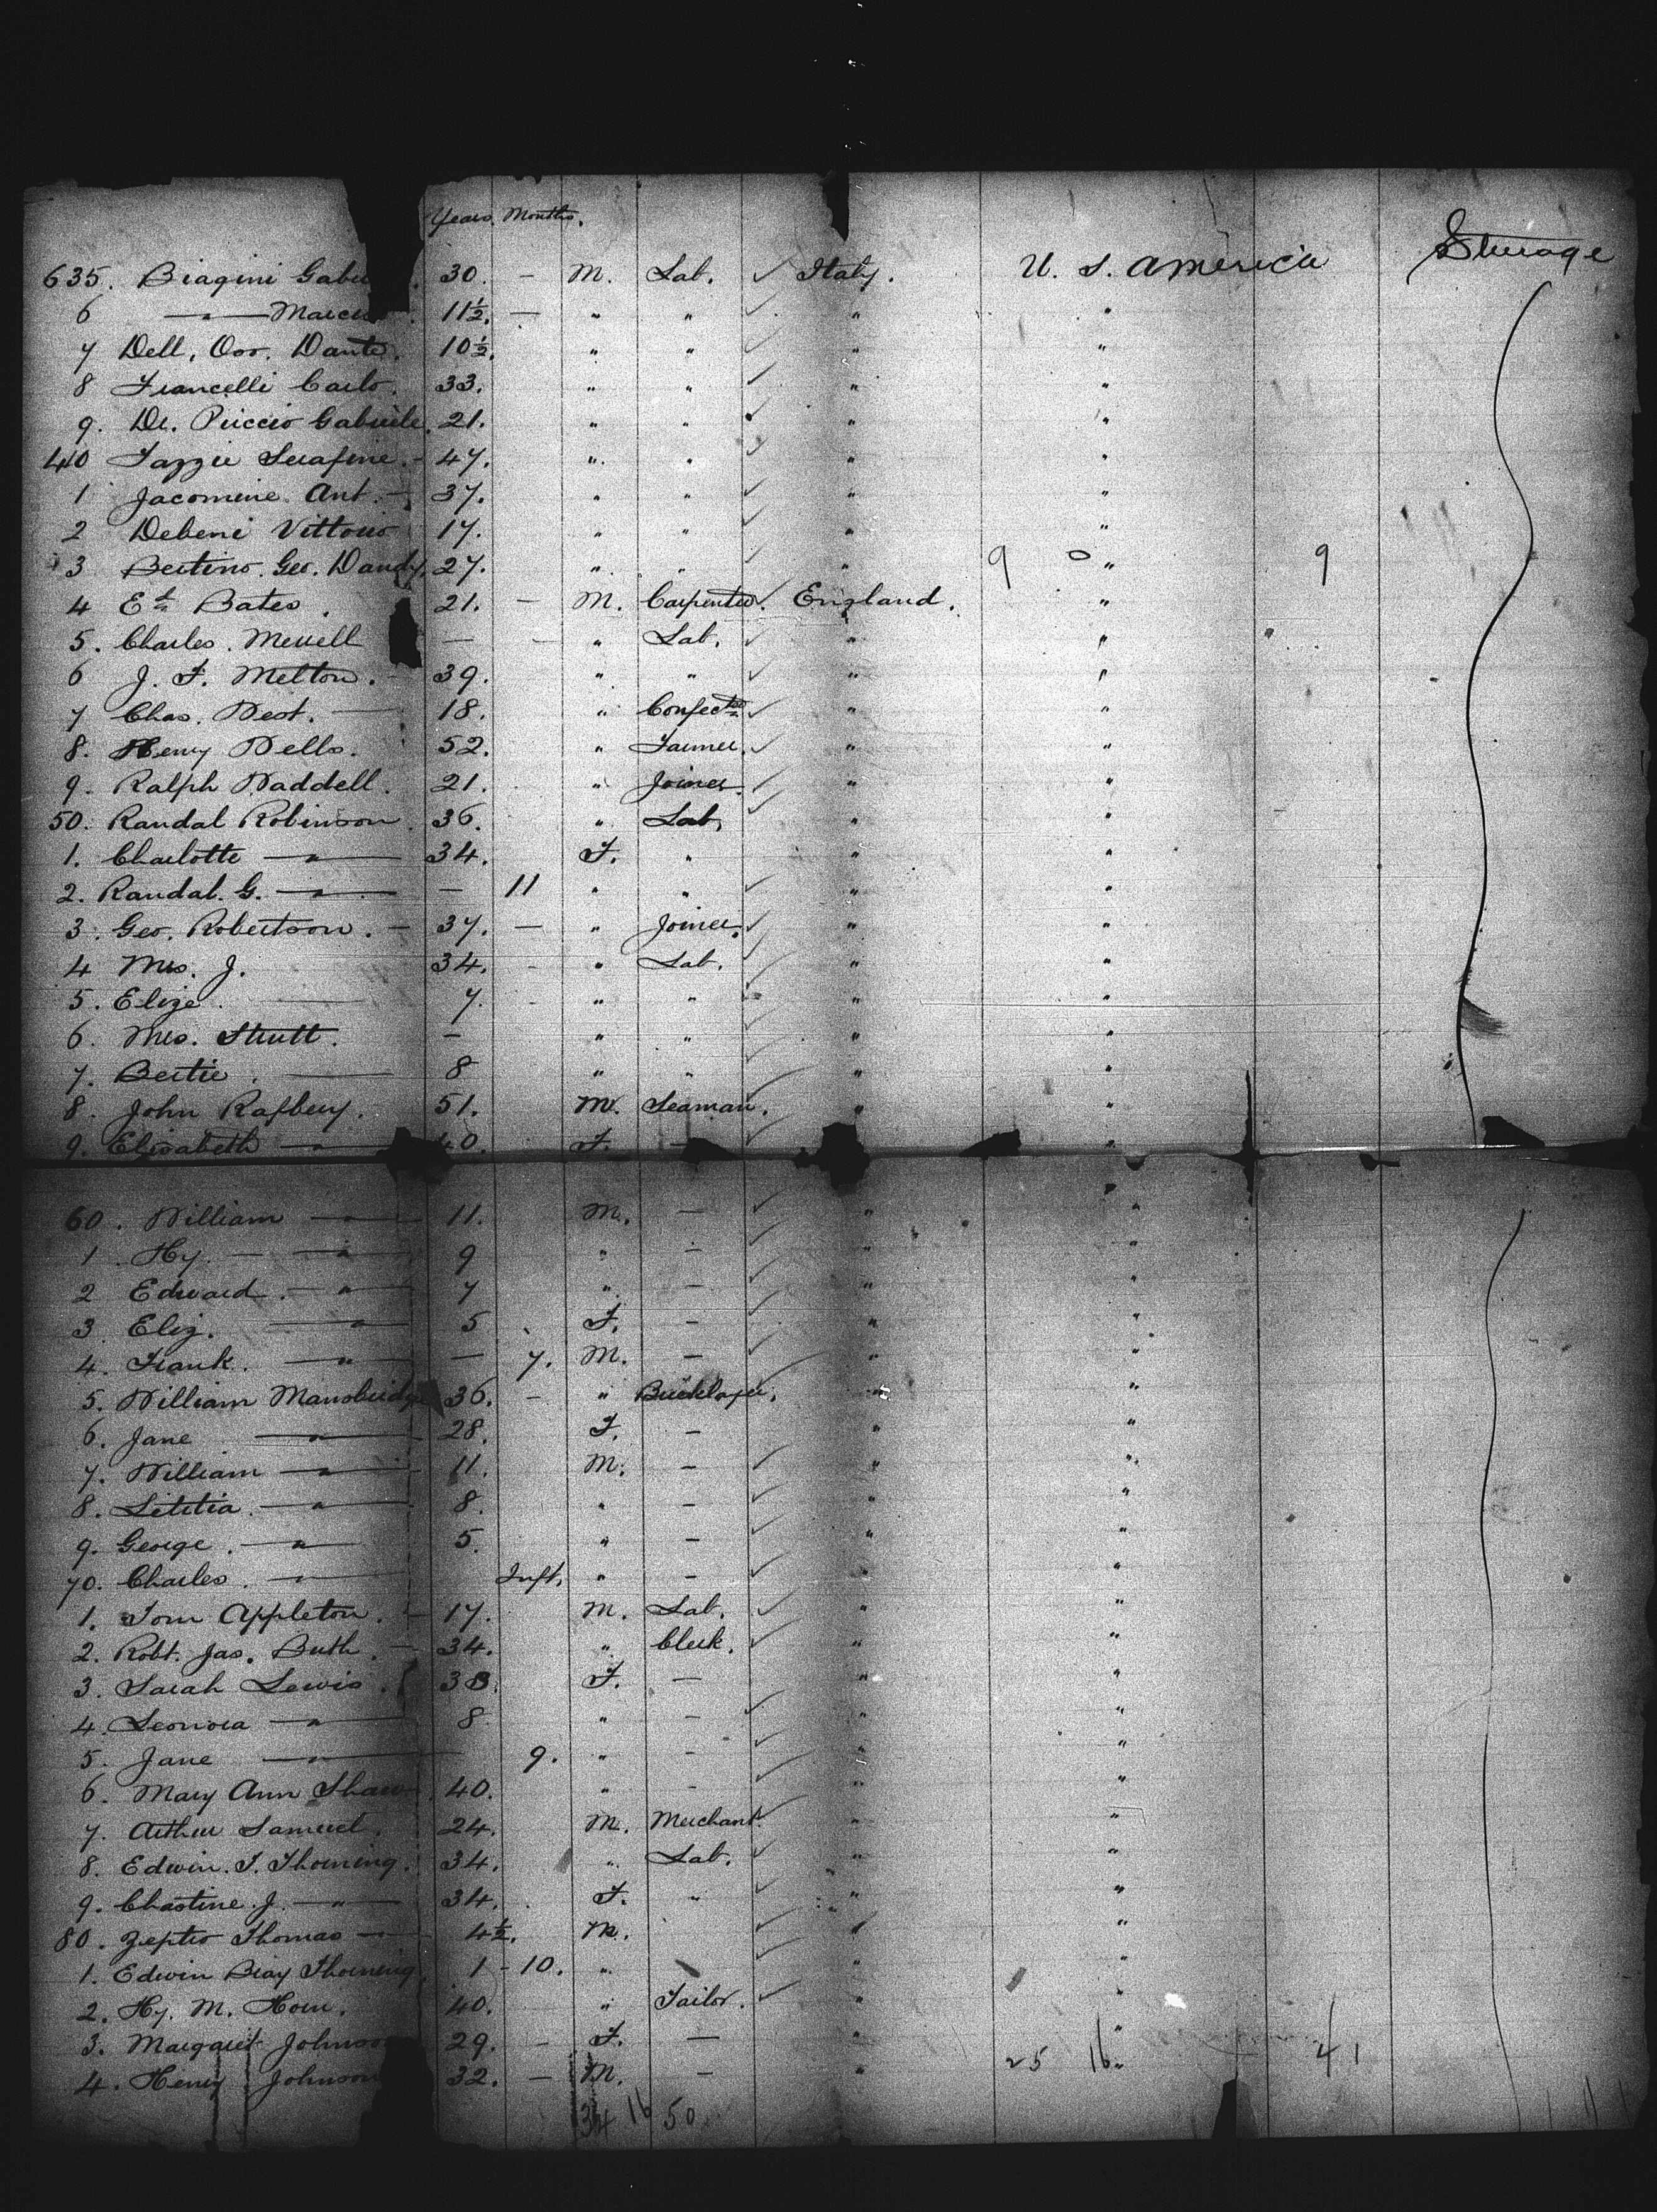 Years. Months.
635. Biagini Gabri 30. - M. Lab. ✓ Italy. U. S. America Steerage
6 —"— Marcu 11½. - " " ✓ " "
7 Dell, Oro. Dante. 10½. " " ✓ " "
8 Francelli Carlo. 33. " " ✓ " "
9. De. Puccio Gabriele. 21. " " ✓ " "
40 Fazzie Serafine. - 47. " " ✓ " "
1 Jacomine Ant. - 37. " " ✓ " "
2 Debene Vittorio 17. " " ✓ " "
3 Bertino. Geo. Dandy. 27. " " ✓ " 9 0 " 9
4 Bates. 21. - M. Carpenter. ✓ England. "
5. Charles. Merrell — - " Lab. ✓ " "
6 J. F. Melton. - 39. " " ✓ " "
7 Chas. West. — 18. " ✓ " "
8. Henry Wells. 52. " Farmer. ✓ " "
9. Ralph Waddell. 21. " Joiner. ✓ " "
50. Randal Robinson. 36. " Lab. ✓ " "
1. Charlotte —"— 34. F. " " "
2. Randal. G. —"— - 11 " " ✓ " "
3. Geo. Robertson. - 37. — " Joiner. ✓ " "
4 Mrs. J. 34. - " Lab. ✓ " "
5. Elize. — 7. - " " ✓ " "
6. Mrs. Strutt. - " " ✓ " "
7. Bertie. — 8 " " ✓ " "
8. John Rafbery. 51. M. Seaman. ✓ " "
9. Elisabeth —"— 40. F. - ✓ "
60. William —"— 11. M. - ✓ " "
1. Hy. - —"— 9 " - ✓ " "
2 Edward. - " — 7 " - ✓ " "
3. Eliz. —"— 5 F. - ✓ " "
4. Frank. —"— — 7. M. - ✓ " "
5. William Mansbridge 36. - " Bricklayer. ✓ " "
6. Jane —"— 28. F. - " "
7. William —"— 11. M. - ✓ " "
8. Letitia. —"— 8. " - ✓ " "
9. George. —"— 5. " - ✓ " "
70. Charles. —"— Inft. " - ✓ " "
1. Tom Appleton. - 17. M. Lab. ✓ " "
2. Robt. Jas. Buth. - 34. " Clerk. ✓ " "
3. Sarah Lewis. 33. F. — " "
4. Leonora —"— 8. " - ✓ " "
5. Jane —"— 9. " - ✓ " "
6. Mary Ann Shaw 40. " - ✓ " "
7. Arthur Samuel. 24. M. Merchant. ✓ " "
8. Edwin. T. Thorning. 34. " Lab. ✓ " "
9. Chastine. J. —"— 34. F. " ✓ " "
80. Zeptio Thomas —"— 4½. M. ✓ " "
1. Edwin Bray Thorning 1 - 10. " ✓ " "
2. Hy. M. Horn. 40. " Tailor. ✓ " "
3. Margaret Johnso 29. - F. — " "
4. Henry Johnson 32. — M. — " 25 16 " 41
34 16 50